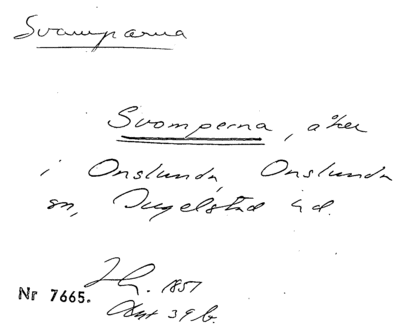 Svamparna
Svomperna, åker
i Onslunda, Onslunda
sn, Ingelstad hd.
1851
Nr 7665. Akt 39 b.